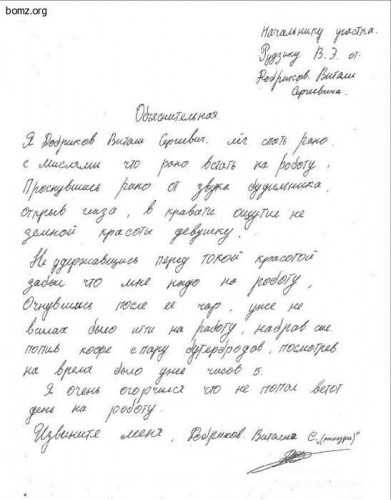 bomz.org
Начальнику участка.
Рудзику В.Э. от.
Добриков. Витали
Сергеевича.
Объяснительная
Я Добриков Витали Сергеевич, лёг спать рано
с мислями что рано встать на роботу,
Проснувшись рано от звука будильника,
открыв глаза, в кравати ощутил не
земной красоты девушку.
Не удержавщись перед такой красотой
забыл что мне надо на роботу,
Очнувшись после ее чар, уже не
было ити на работу, набрав
попив кофе с пару бутербродов, посмотрев
на время было уже часов 5.
Я очень огорчился что не попал вэтот
день на роботу.
Извините меня, Добриков. Виталий С.